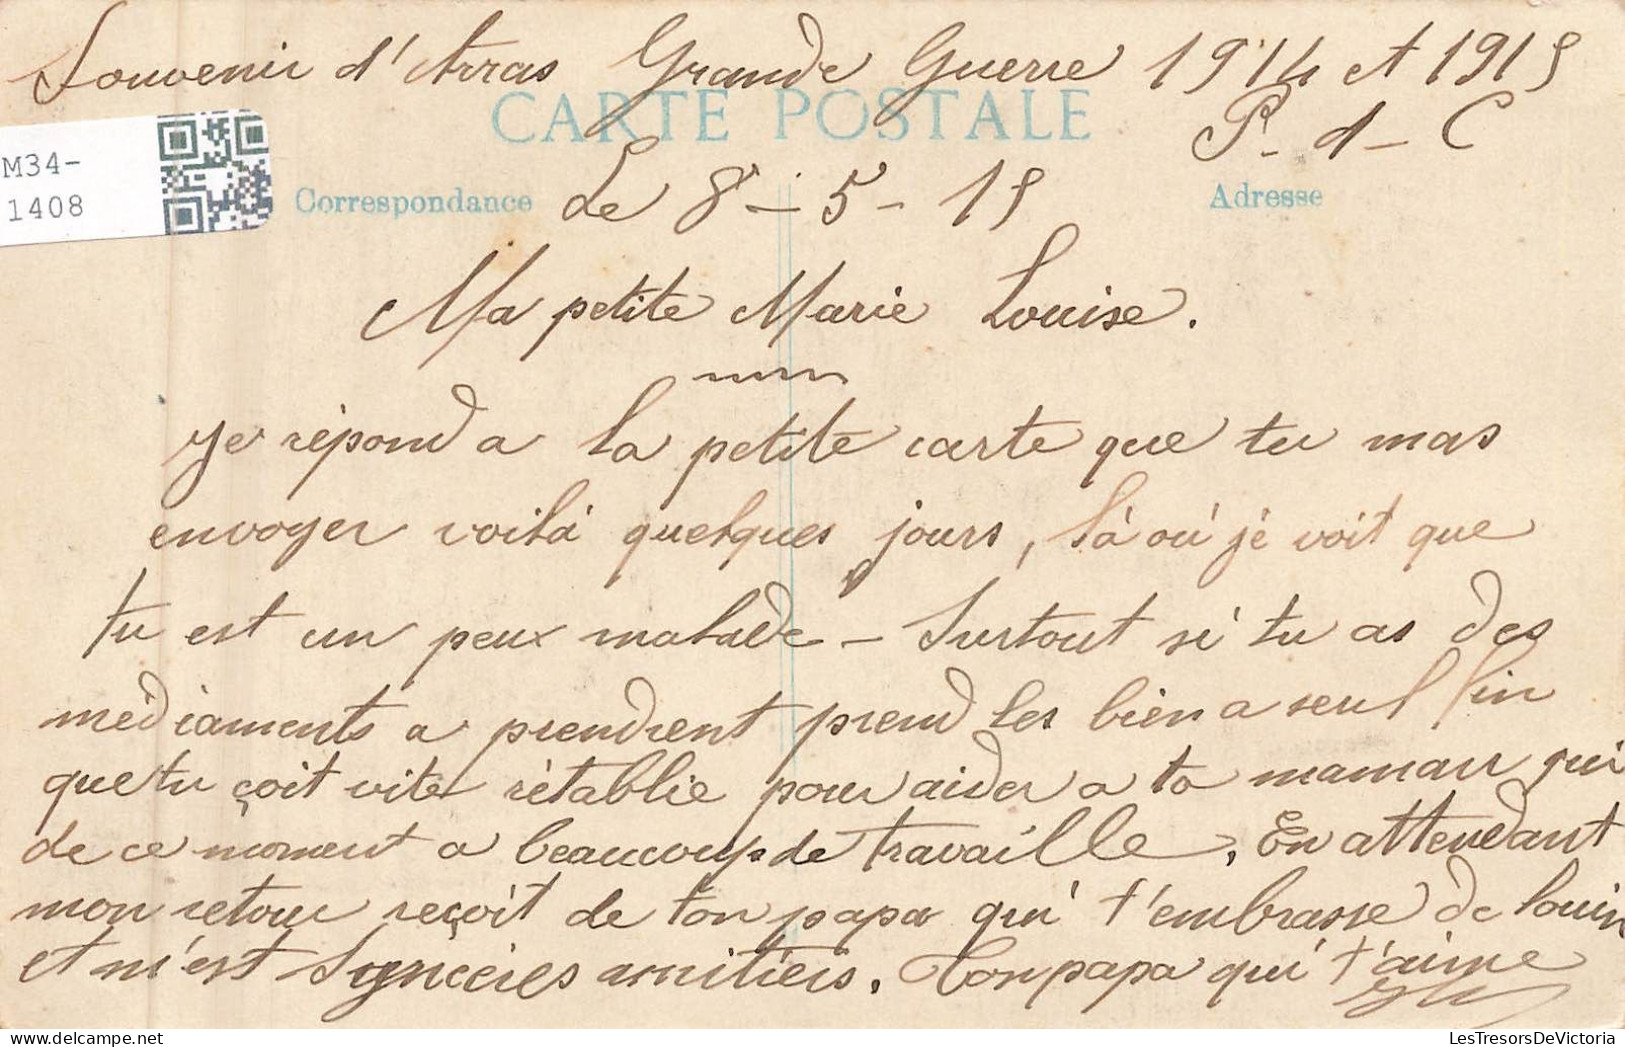 Souvenir d'Arras Grande Guerre 1914 et 1915
CARTE POSTALE
P-d-C
M34-
1408
Correspondance
Le 8-5-15
Adresse
Ma petite Marie Louise.
Je répond a la petite carte que tu mas
envoyer voilà quelques jours, là où jè voit que
tu est un peux malade - Surtout si tu as des
médicaments a prendrent prend les bien a seul fin
que tu çoit vite rétablie pour aider a ta maman qui
de ce moment a beaucoup de travaille. En attendant
mon retour reçoit de ton papa qui t'embrasse de louin
et m'est Synceres amitiers. Ton papa qui t'aime
LesTresorsDeVictoria.com